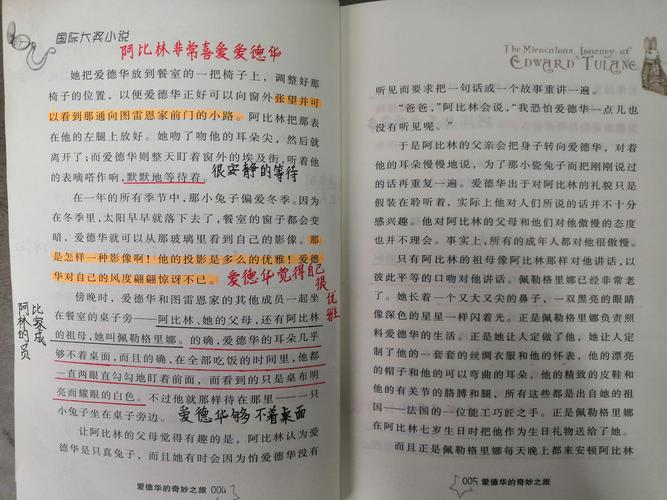 国际大奖小说
阿比林非常喜爱爱德华
她把爱德华放到餐室的一把椅子上，调整好那
椅子的位置，以便爱德华正好可以向窗外张望并可
以看到那通向图雷恩家前门的小路。阿比林把那表
在他的左腿上放好。她吻了吻他的耳朵尖，然后就
离开了；而爱德华则整天盯着窗外的埃及街，听着他
的表嘀嗒作响，默默地等待着。
很安静的等待
在一年的所有季节中，那小兔子偏爱冬季。因为
在冬季里，太阳早早就落下去了，餐室的窗子都会变
暗，爱德华就可以从那玻璃里看到自己的影像。那
是怎样一种影像啊！他的投影是多么的优雅！爱德
华对自己的风度翩翩惊讶不已。
爱德华觉得自己很优雅
傍晚时，爱德华和图雷恩家的其他成员一起坐
在餐室的桌子旁——阿比林、她的父母，还有阿比林
的祖母，她叫佩勒格里娜。的确，爱德华的耳朵几乎
够不着桌面，而且的确，在全部吃饭的时间里，他都
一直两眼直勾勾地盯着前面，而看到的只是桌布明
亮而耀眼的白色。不过他就那样待在那里——一只
小兔子坐在桌子旁边。
爱德华够不着桌面
阿比林家的成员
让阿比林的父母觉得有趣的是，阿比林认为爱
德华是只真兔子，而且她有时会因为怕爱德华没有
爱德华的奇妙之旅 004
The Miraculous Journey of
EDWARD TULANE
听见而要求把一句话或一个故事重讲一遍。
“爸爸，”阿比林会说，“我恐怕爱德华一点儿也
没有听见呢。”
于是阿比林的父亲会把身子转向爱德华，对着
他的耳朵慢慢地说，为了那小瓷兔子而把刚刚说过
的话再重复一遍。爱德华出于对阿比林的礼貌只是
假装在聆听着，实际上他对人们所说的话并不十分
感兴趣。他对阿比林的父母和他们对他傲慢的态度
也并不理会。事实上，所有的成年人都对他很傲慢。
只有阿比林的祖母像阿比林那样对他讲话，以
彼此平等的口吻对他讲话。佩勒格里娜已经非常老
了。她长着一个又大又尖的鼻子，一双黑亮的眼睛
像深色的星星一样闪着光。正是佩勒格里娜负责照
料爱德华的生活。正是她让人定做了他，她让人定
制了他的一套套的丝绸衣服和他的怀表，他的漂亮
的帽子和他的可以弯曲的耳朵，他的精致的皮鞋和
他的有关节的胳膊和腿，所有这些都是出自她的祖
国——法国的一位能工巧匠之手。正是佩勒格里娜
在阿比林七岁生日时把他作为生日礼物送给了她。
而且正是佩勒格里娜每天晚上都来安顿阿比林
005 爱德华的奇妙之旅